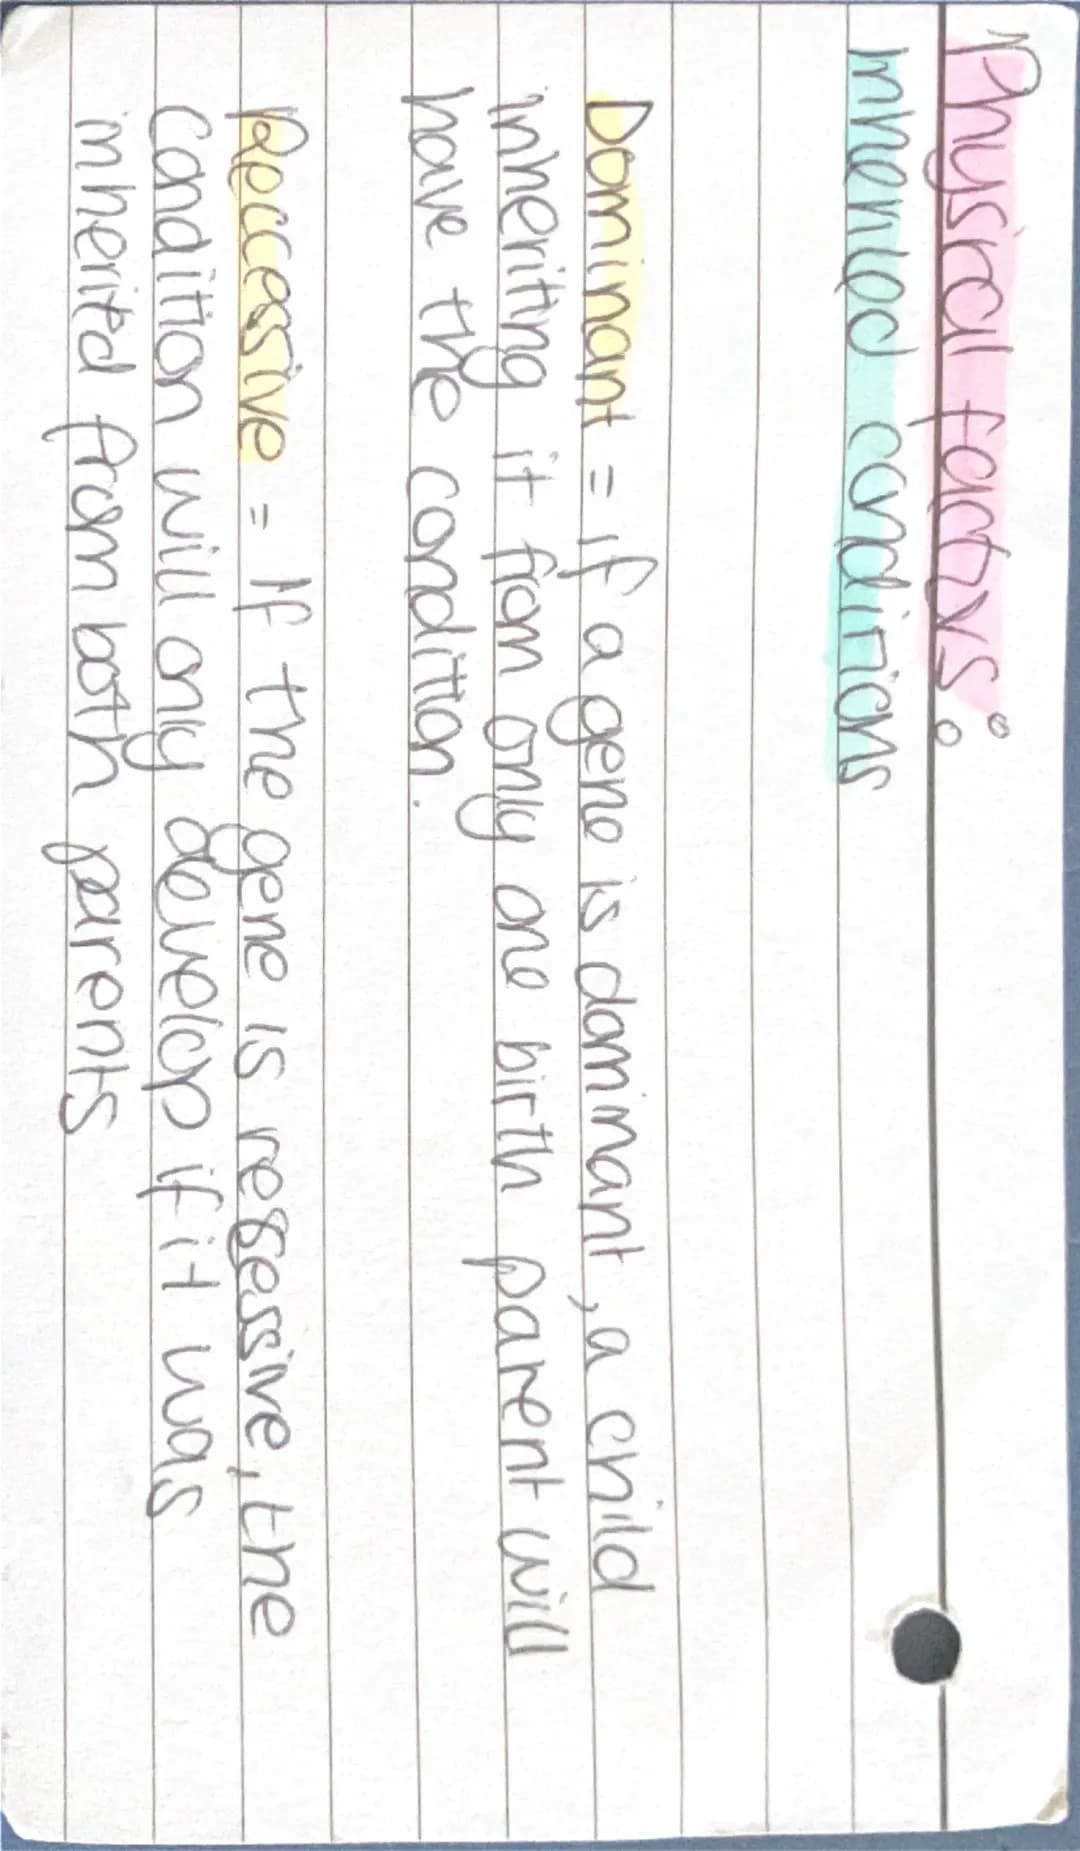 Physical factors:
inherited conditions
Dominant = if a gene is dominant, a child
inheriting it from only one birth parent will
have the condition.
Reccessive = If the gene is resessive, the
condition will only develop if it was
inherited from both parents